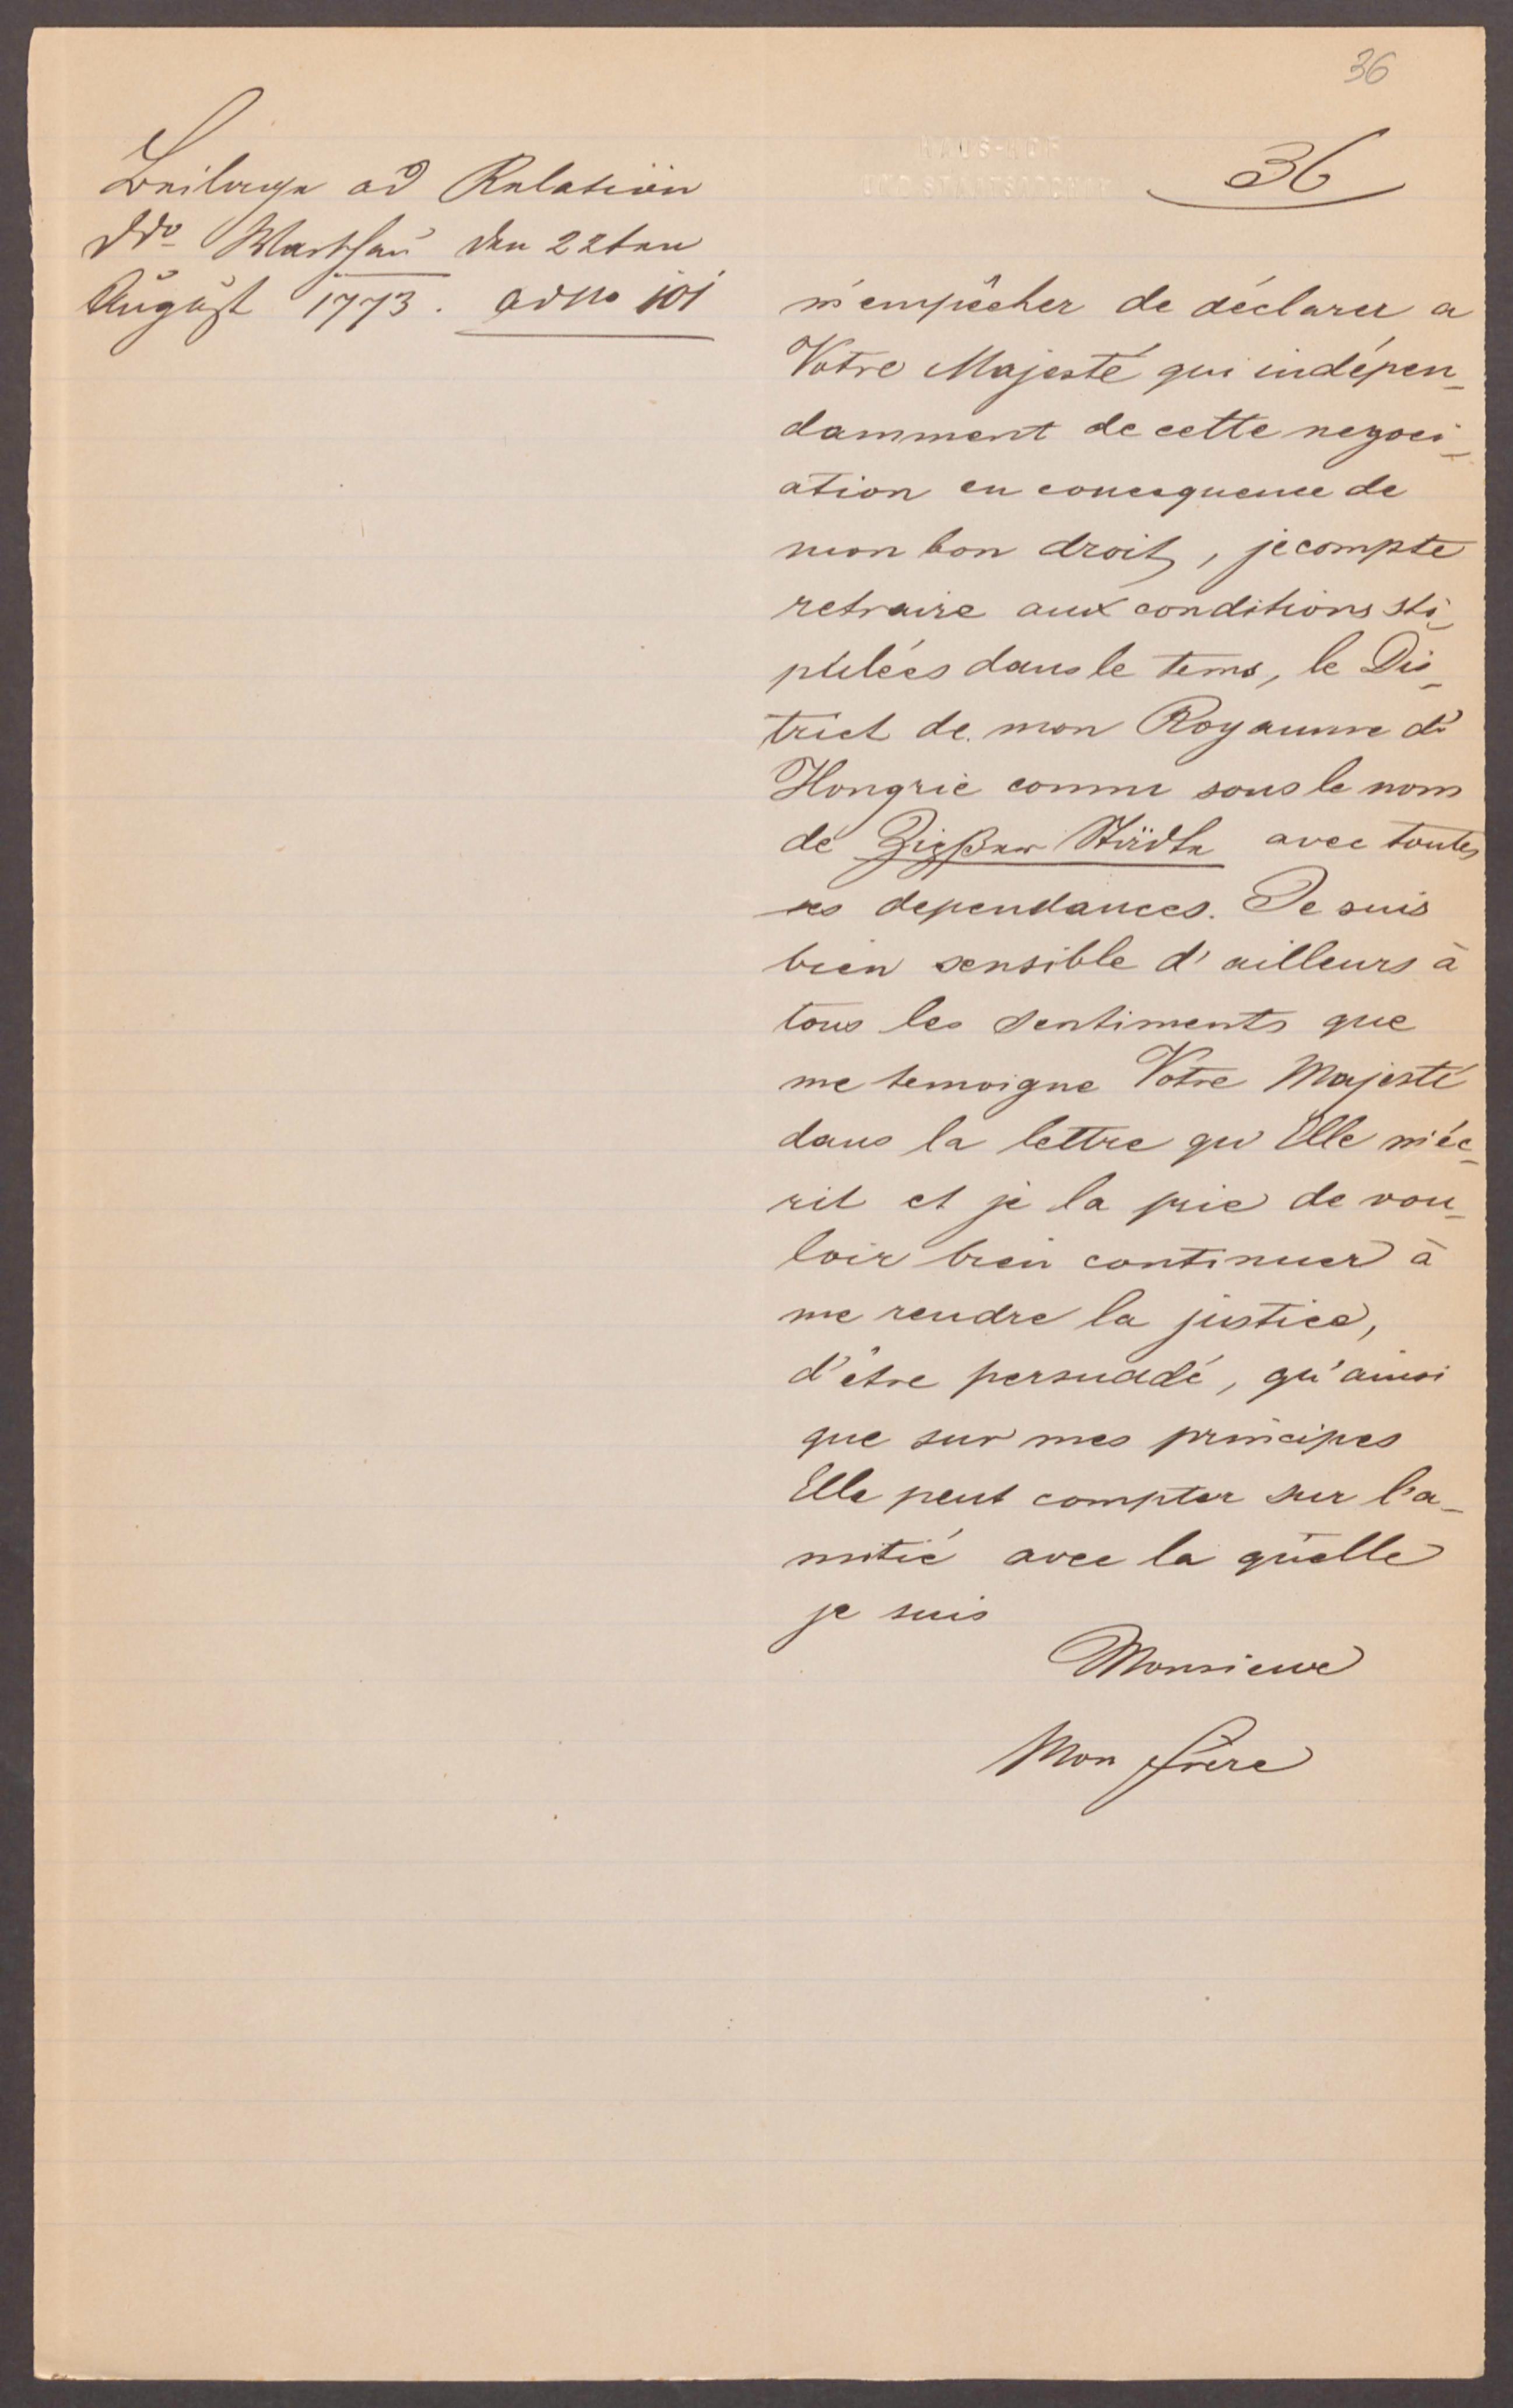 36
HAUS-HOF
UND STAATSARCHIV
36
Beilage ad Relation
ddo Warschau den 22ten
August 1773. ad No 101
m'empêcher de déclarer a
Votre Majesté qui indépen-
damment de cette negoci-
ation en consequence de
mon bon droit, je compte
retraire aux conditions sti-
pulées dans le tems, le Dis-
trict de mon Royaume d'
Hongrie connu sous le nom
de Zipser Städte avec toutes
ses dependances. Je suis
bien sensible d'ailleurs à
tous les sentiments que
me temoigne Votre Majesté
dans la lettre qu'Elle m'éc-
rit et je la prie de vou-
loir bien continuer à
me rendre la justice,
d'être persuadé, qu'ainsi
que sur mes principes
Elle peut compter sur l'a-
mitié avec la quelle
je suis
Monsieur
Mon frère